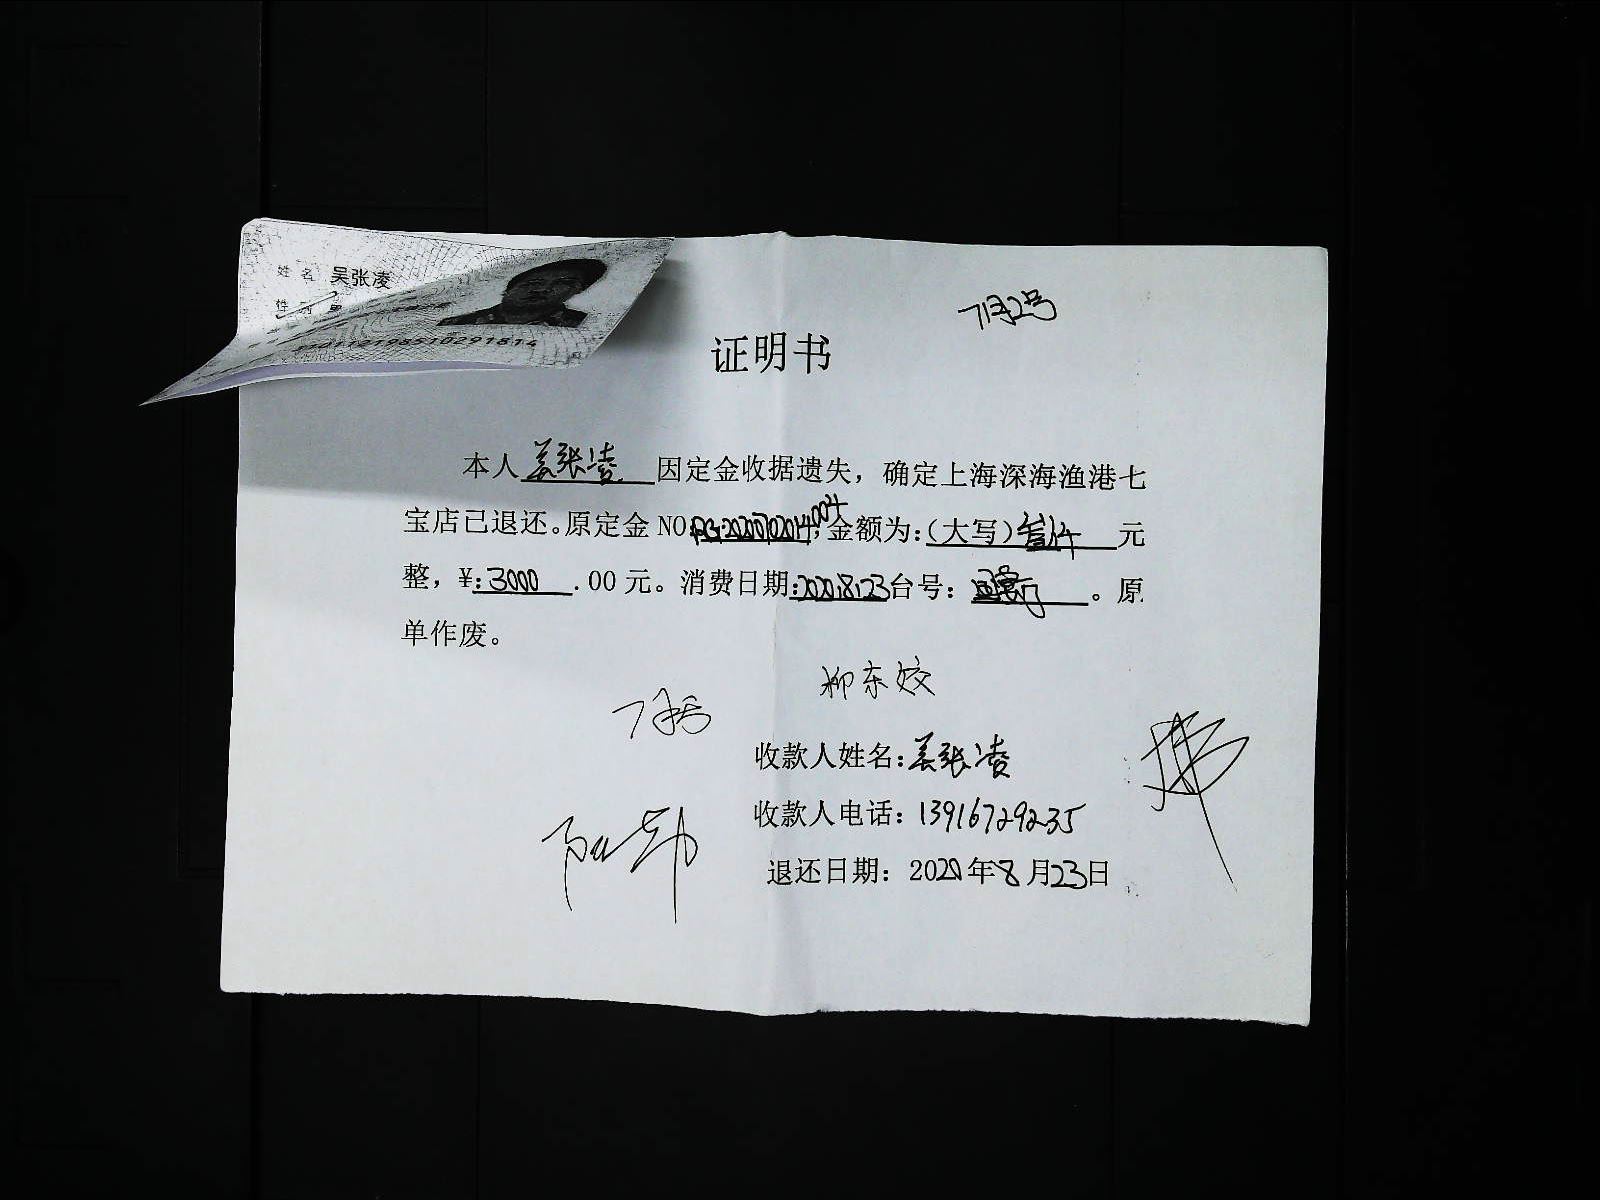 姓 名 吴张凌
性
198510291814
7月2号
证明书
本人吴张凌因定金收据遗失，确定上海深海渔港七
宝店已退还。原定金NO:PG20200702014004，金额为：（大写）叁仟元
整，¥:3000.00元。消费日期:2020.8.23台号：。原
单作废。
柳东姣
收款人姓名:吴张凌
收款人电话：13916729235
退还日期：2020年8月23日